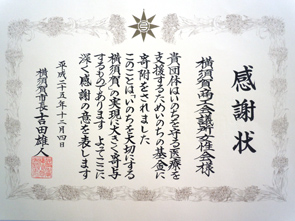 感謝状
横須賀商工会議所女性会様
貴団体はいのちを守る医療を
支援するためいのちの基金に
寄附をされました
このことは「いのちを大切にする
横須賀」の実現に大きく寄与
するものであります よってここに
深く感謝の意を表します
平成二十五年十二月四日
横須賀市長 吉田雄人